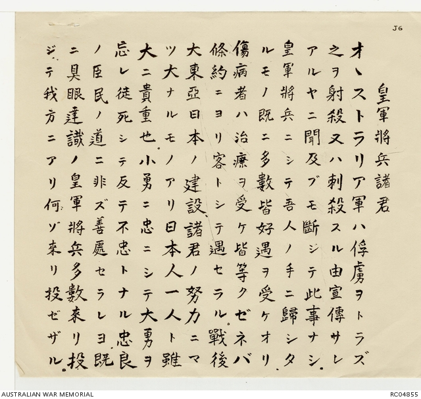 J6
皇軍將兵諸君
オーストラリア軍ハ俘虜ヲトラズ
之ヲ射殺又ハ刺殺スル由宣傳サレ
アルヤニ聞及ブモ斷ジテ此事ナシ
皇軍將兵ニシテ吾人ノ手ニ歸シタ
ルモノ既ニ多數皆好遇ヲ受ケオリ
傷病者ハ治療ヲ受ケ皆等クゼネバ
條約ニヨリ客トシテ遇セラル.戰後
大東亞日本ノ建設諸君ノ努力ニマ
ツ大ナルモノアリ日本人一人ト雖
大ニ貴重也.小勇ニ忠ニシテ大勇ヲ
忘レ徒死シテ反テ不忠トナル忠良
ノ臣民ノ道ニ非ズ善處セラレヨ.既
ニ具眼達識ノ皇軍將兵多數來リ投
ジテ我方ニアリ何ゾ來リ投ゼザル.
AUSTRALIAN WAR MEMORIAL
RC04855